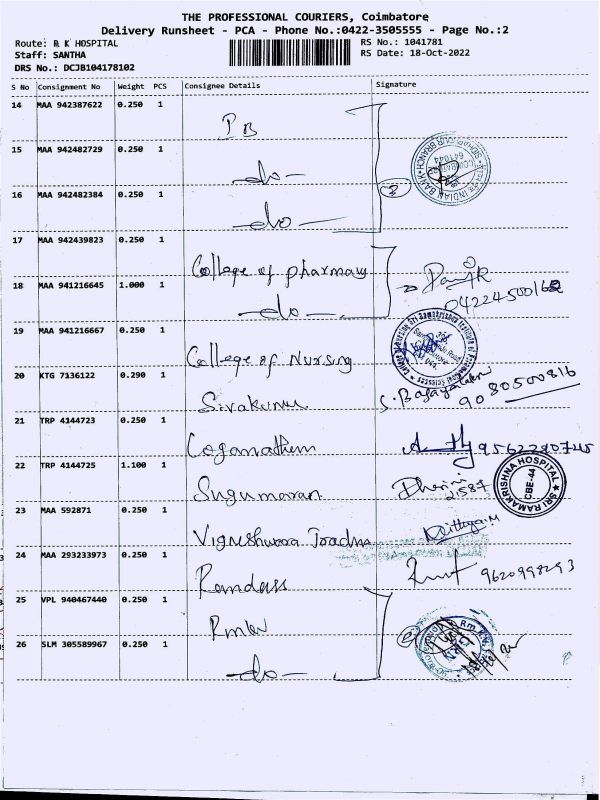 THE PROFESSIONAL COURIERS, Coimbatore
Delivery Runsheet - PCA - Phone No.:0422-3505555 - Page No.:2
Route: R K HOSPITAL RS No.: 1041781
Staff: SANTHA RS Date: 18-Oct-2022
DRS No.: DCJB104178102
S No Consignment No Weight PCS Consignee Details Signature
14 MAA 942387622 0.250 1
PB
15 MAA 942482729 0.250 1
-do-
16 MAA 942482384 0.250 1
-do-
17 MAA 942439823 0.250 1
College of pharmacy
18 MAA 941216645 1.000 1
-do-
19 MAA 941216667 0.250 1
College of Nursing
20 KTG 7136122 0.290 1
Sivakumar
9080500816
21 TRP 4144723 0.250 1
22 TRP 4144725 1.100 1
Sugumaran
21587
SRI RAMAKRISHNA HOSPITAL
CBE-44
23 MAA 592871 0.250 1
Vigneshwara
24 MAA 293233973 0.250 1
Ramdass
25 VPL 940467440 0.250 1
26 SLM 305589967 0.250 1
-do-